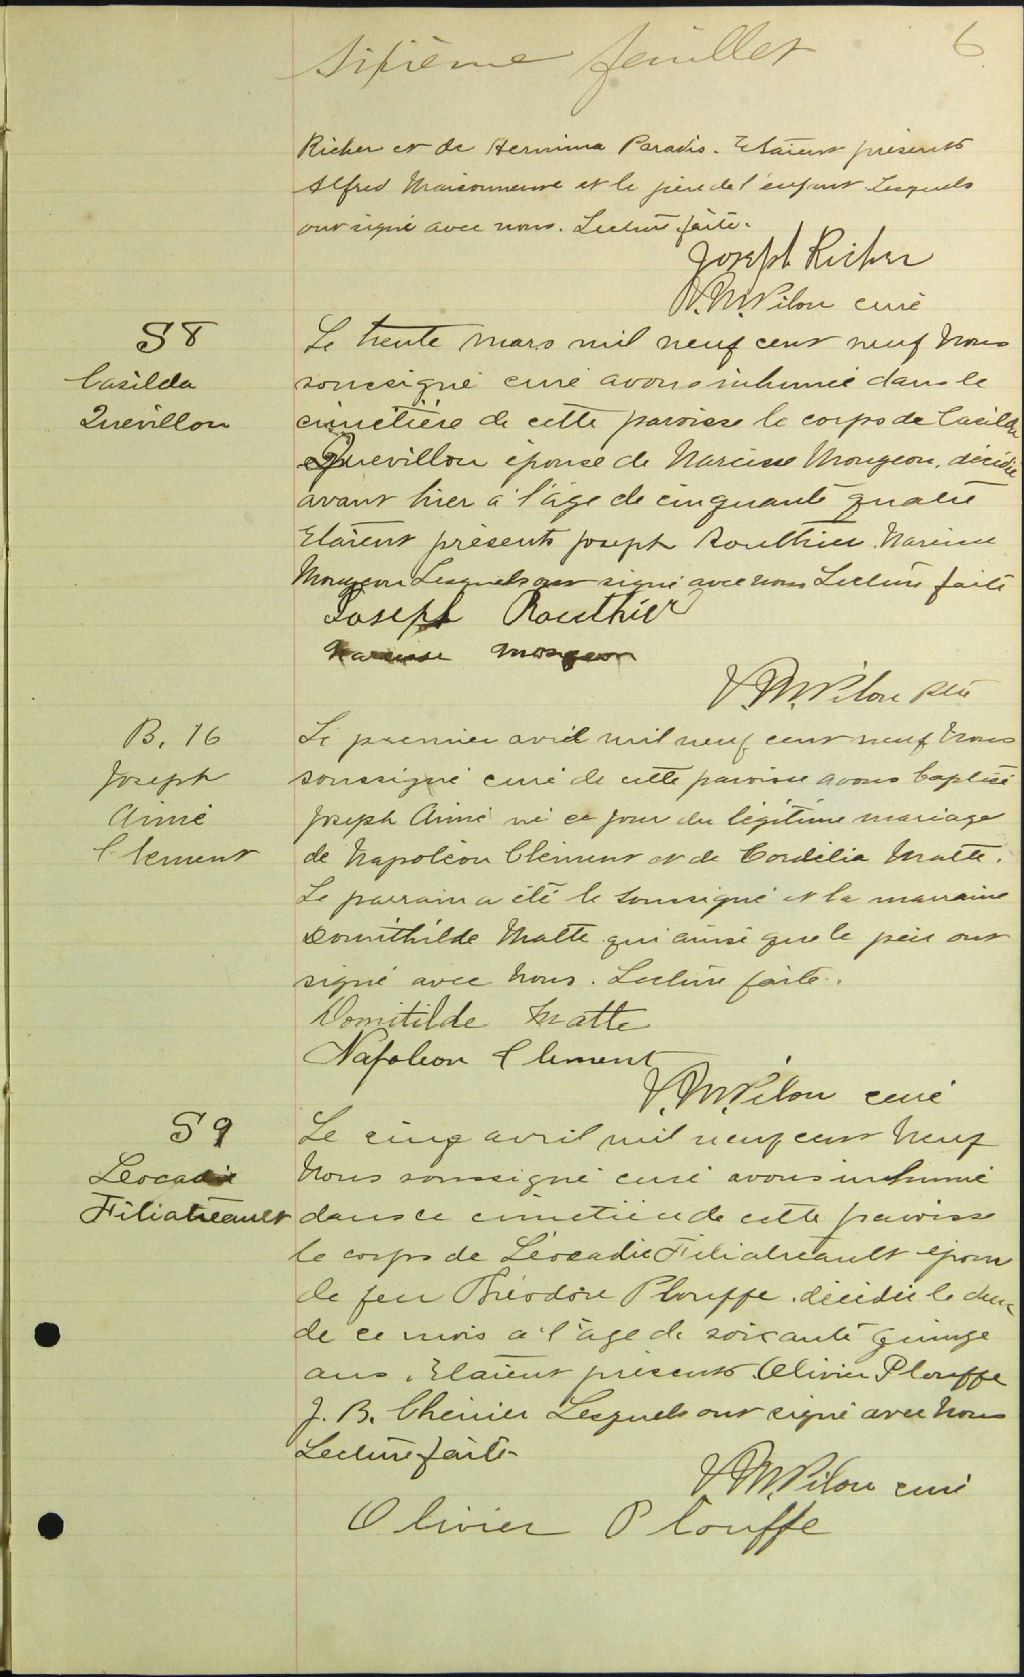 Sixième feuillet 6
Richer et de Hermina Paradis. Etaient présents
Alfred Maisonneuve et le père de l'enfant Lesquels
ont signé avec nous. Lecture faite.
Joseph Richer
V.M.Pilon curé
S 8
Casilda
Quévillon
Le trente mars mil neuf cent neuf Nous
soussigné curé avons inhumé dans le
cimetière de cette paroisse le corps de Casilda
Quevillon épouse de Narcisse Mougeon, décédée
avant hier à l'âge de cinquante quatre
Etaient présents Joseph Routhier Narcisse
Mougeon Lesquels ont signé avec nous Lecture faite
Joseph Routhier
Narcisse Mongeon
V.M.Pilon ptre
B. 16
Joseph
Aimé
Clement
Le premier avril mil neuf cent neuf Nous
soussigné curé de cette paroisse avons baptisé
Joseph Aimé né ce jour du légitime mariage
de Napoléon Clément et de Cordélia Matte.
Le parrain a été le soussigné et la marraine
Domithilde Matte qui ainsi que le père ont
signé avec Nous. Lecture faite.
Domitilde Matte
Napoleon Clement
V.M.Pilon curé
S 9
Leocadie
Filiatreault
Le cinq avril mil neuf cent Neuf
Nous soussigné curé avons inhumé
dans ce cimetière de cette paroisse
le corps de Léocadie Filiatreault épouse
de feu Théodore Plouffe décédée le deux
de ce mois a l'âge de soixante quinze
ans. Etaient présents Olivier Plouffe
J. B. Chénier Lesquels ont signé avec Nous
Lecture faite
V.M.Pilon curé
Olivier Plouffe